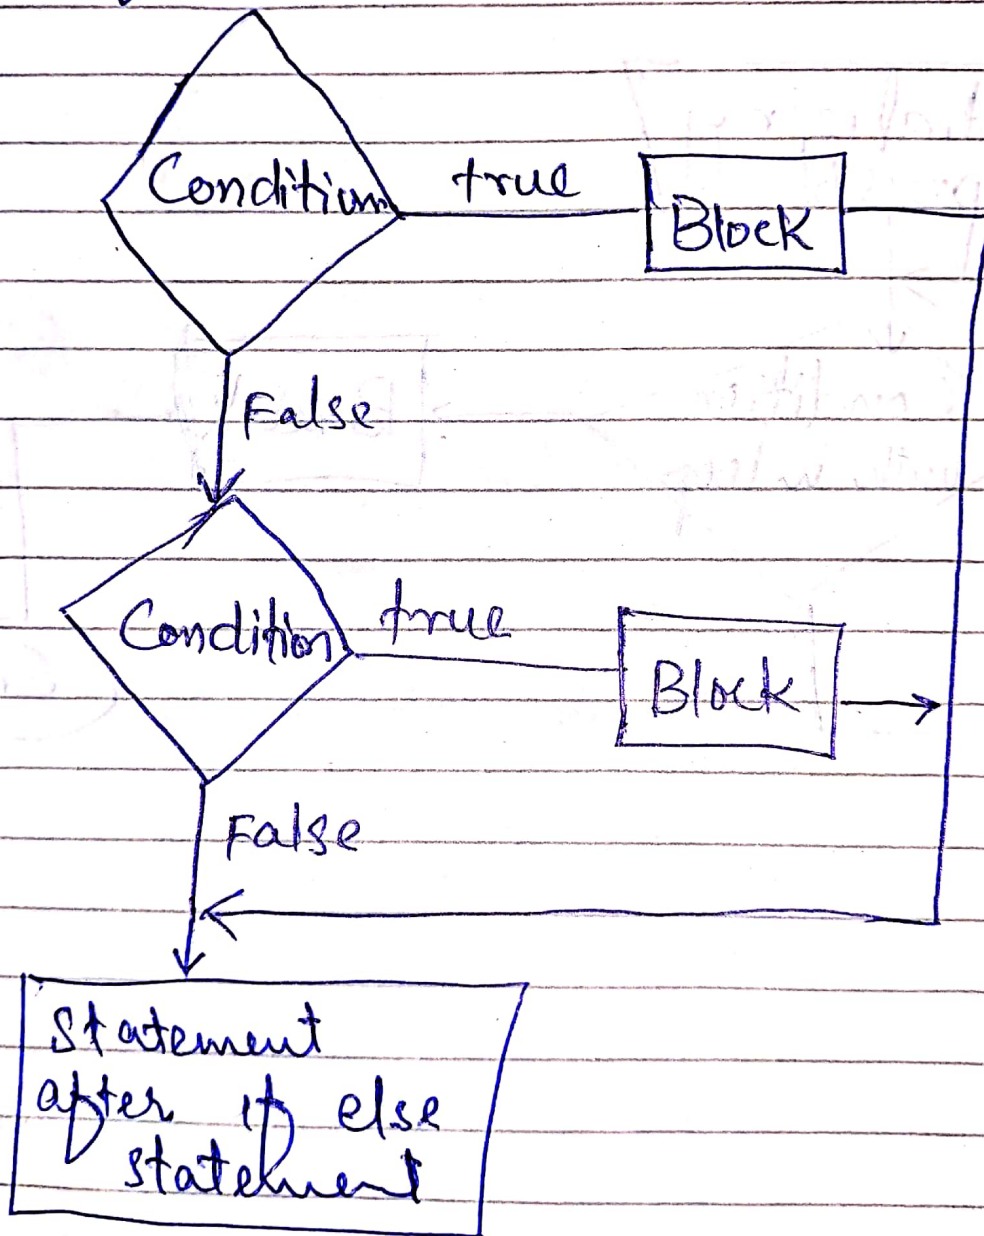 Condition
true
Block
False
Condition
true
Block
False
Statement
after if else
statement